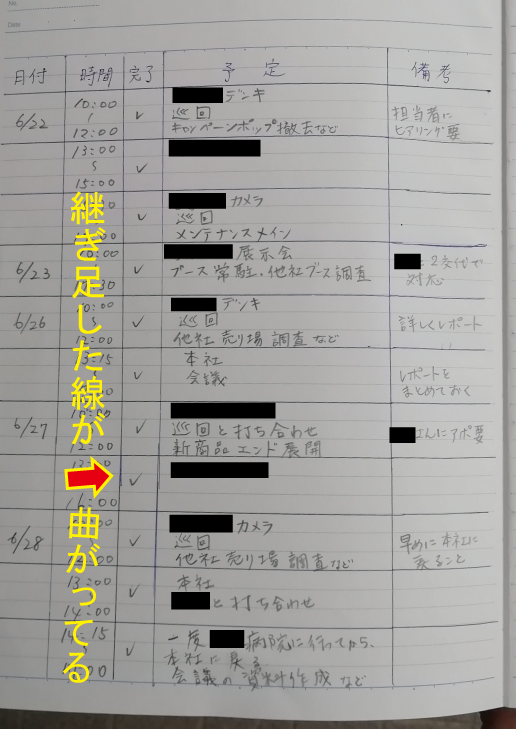 No.
Date
日付 時間 完了 予定 備考
6/22 10:00 〜 12:00 ✓ デンキ
巡回
キャンペーンポップ撤去など
担当者に
ヒアリング要
13:00 〜 15:00 ✓
✓ カメラ
巡回
メンテナンスメイン
6/23 ✓ 展示会
ブース常駐・他社ブース調査
2交代で
対応
6/26 10:00 〜 12:00 ✓ デンキ
巡回
他社売り場調査など
詳しくレポート
13:15 〜 ✓ 本社
会議
レポートを
まとめておく
6/27 10:00 〜 12:00 ✓
巡回と打ち合わせ
新商品エンド展開
さんにアポ要
13:00 〜 ✓
6/28 ✓ カメラ
巡回
他社売り場調査など
早めに本社に
戻ること
13:00 〜 14:00 ✓ 本社
と打ち合わせ
14:15 〜 ✓ 一度 病院に行ってから、
本社に戻る
会議の資料作成など
継ぎ足した線が
曲がってる